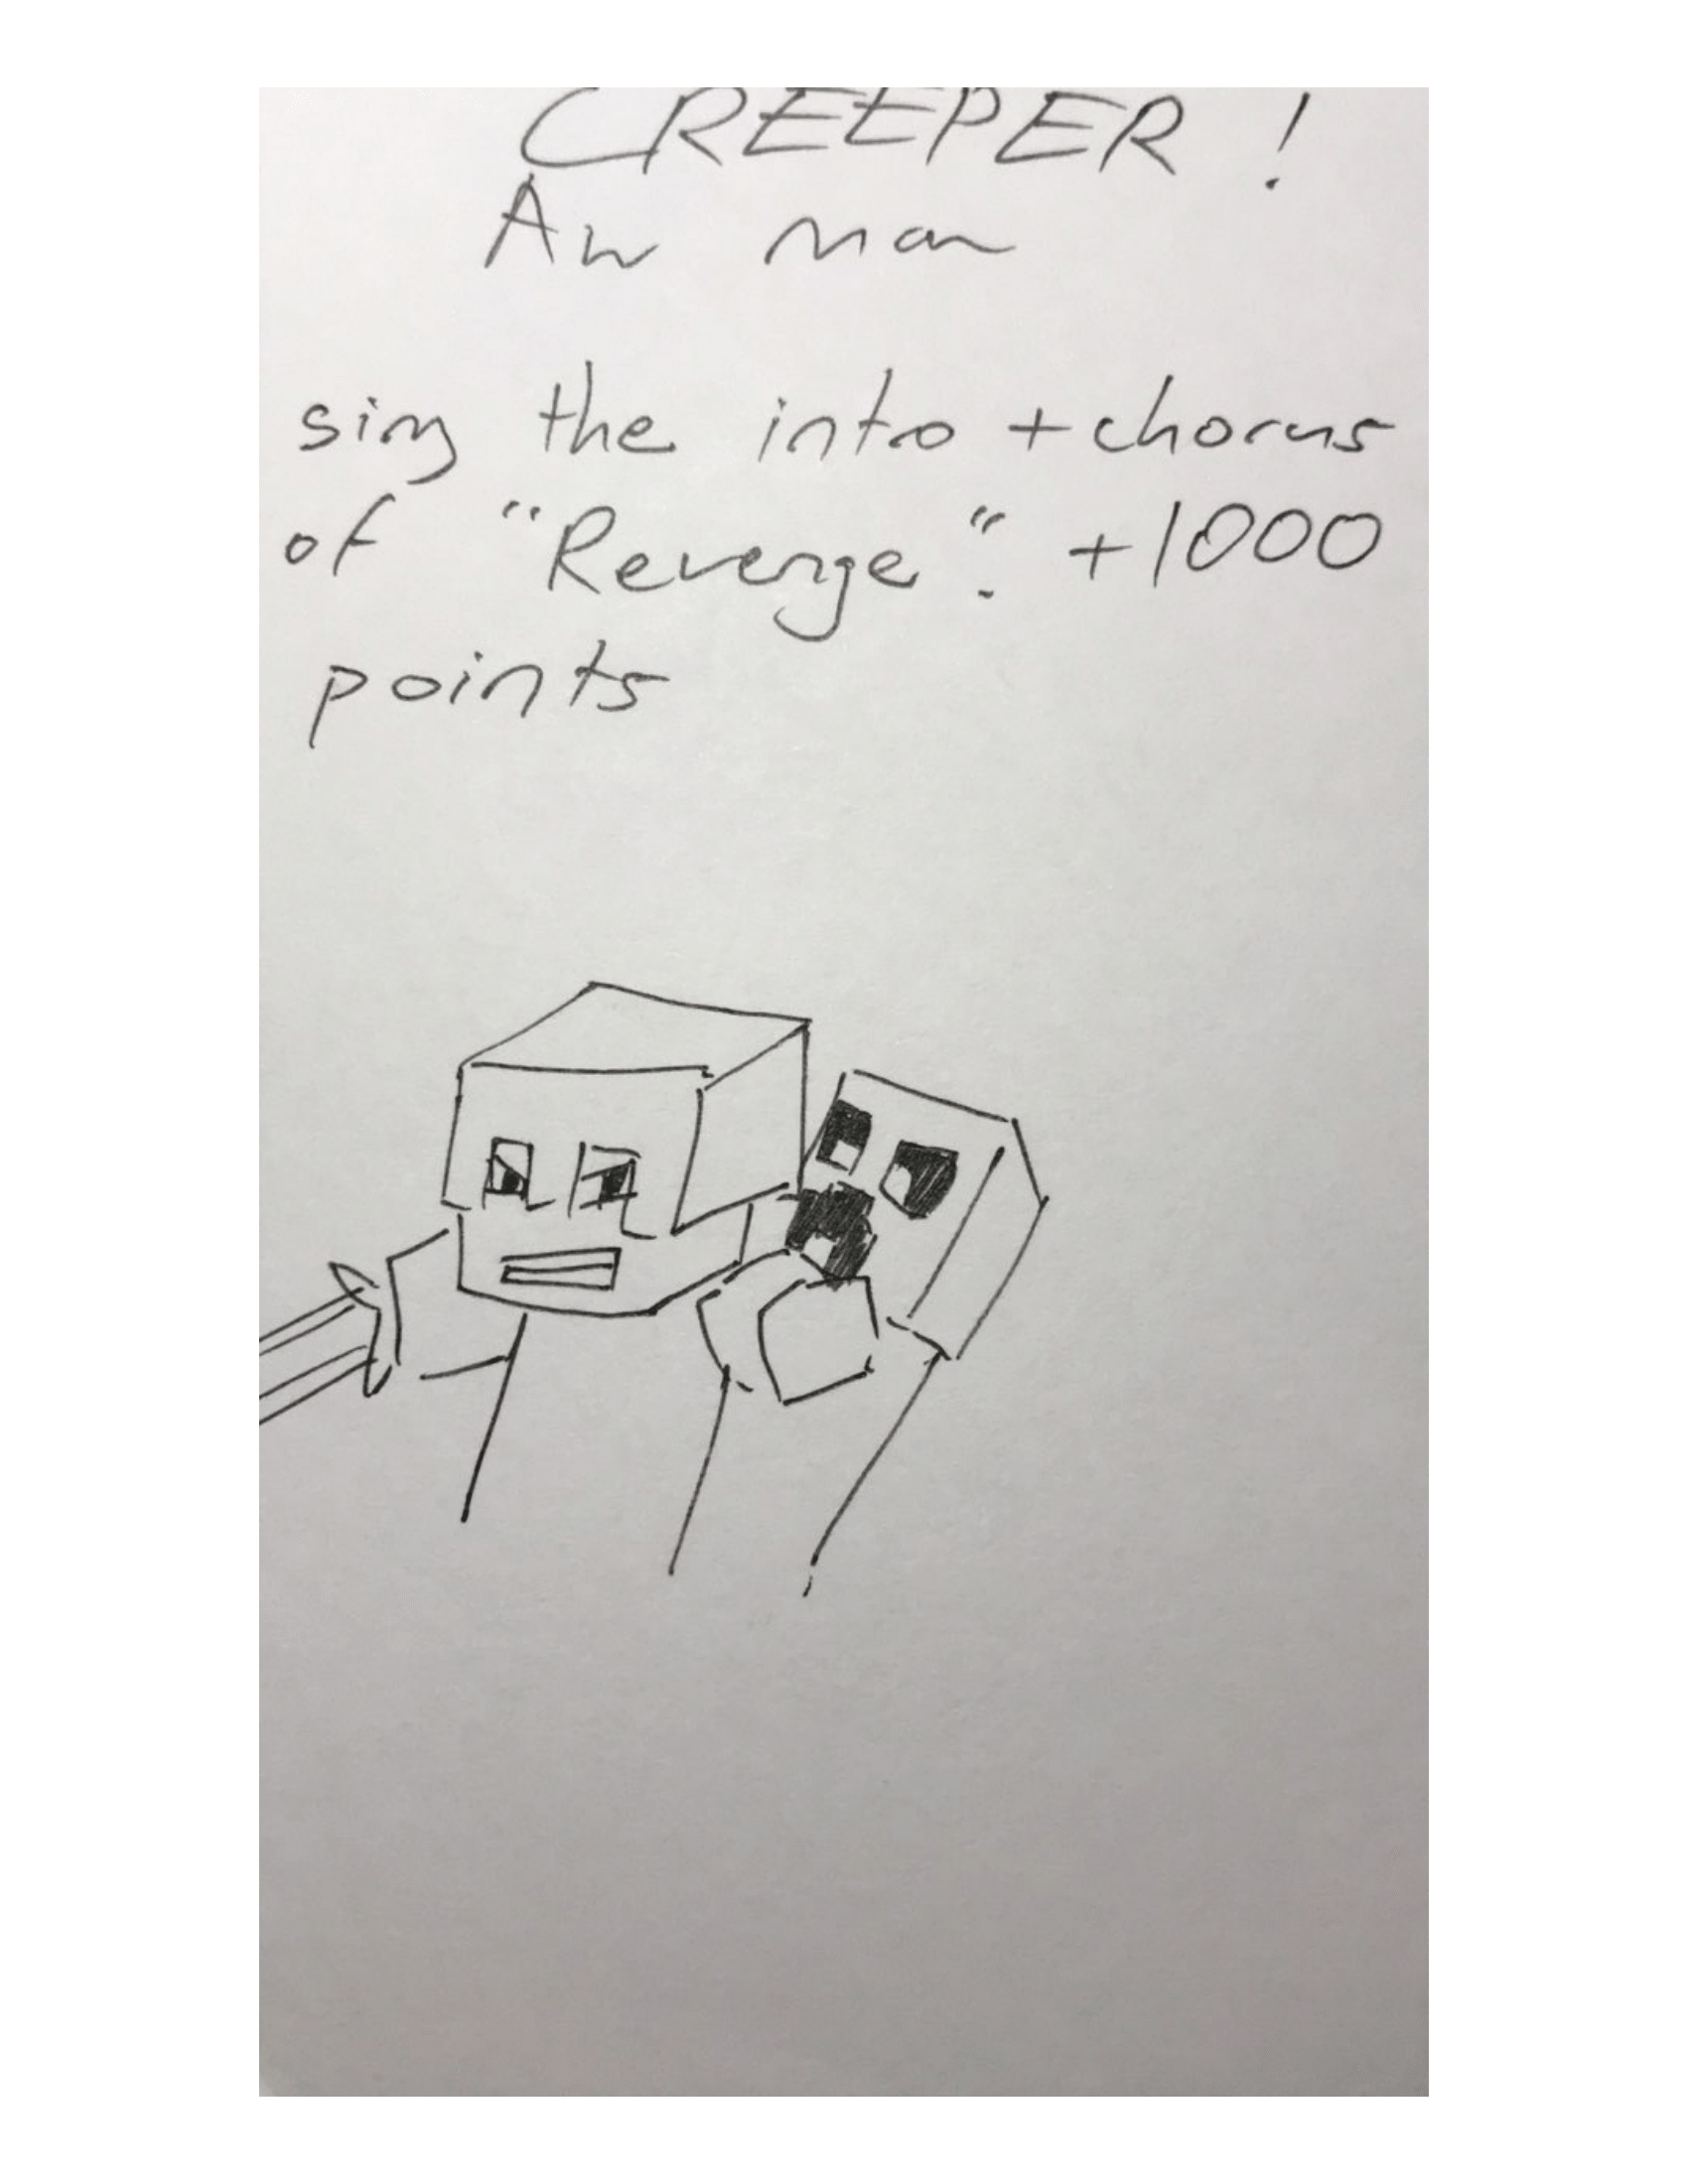 CREEPER !
Aw man
sing the intro + chorus
of "Revenge". +1000
points